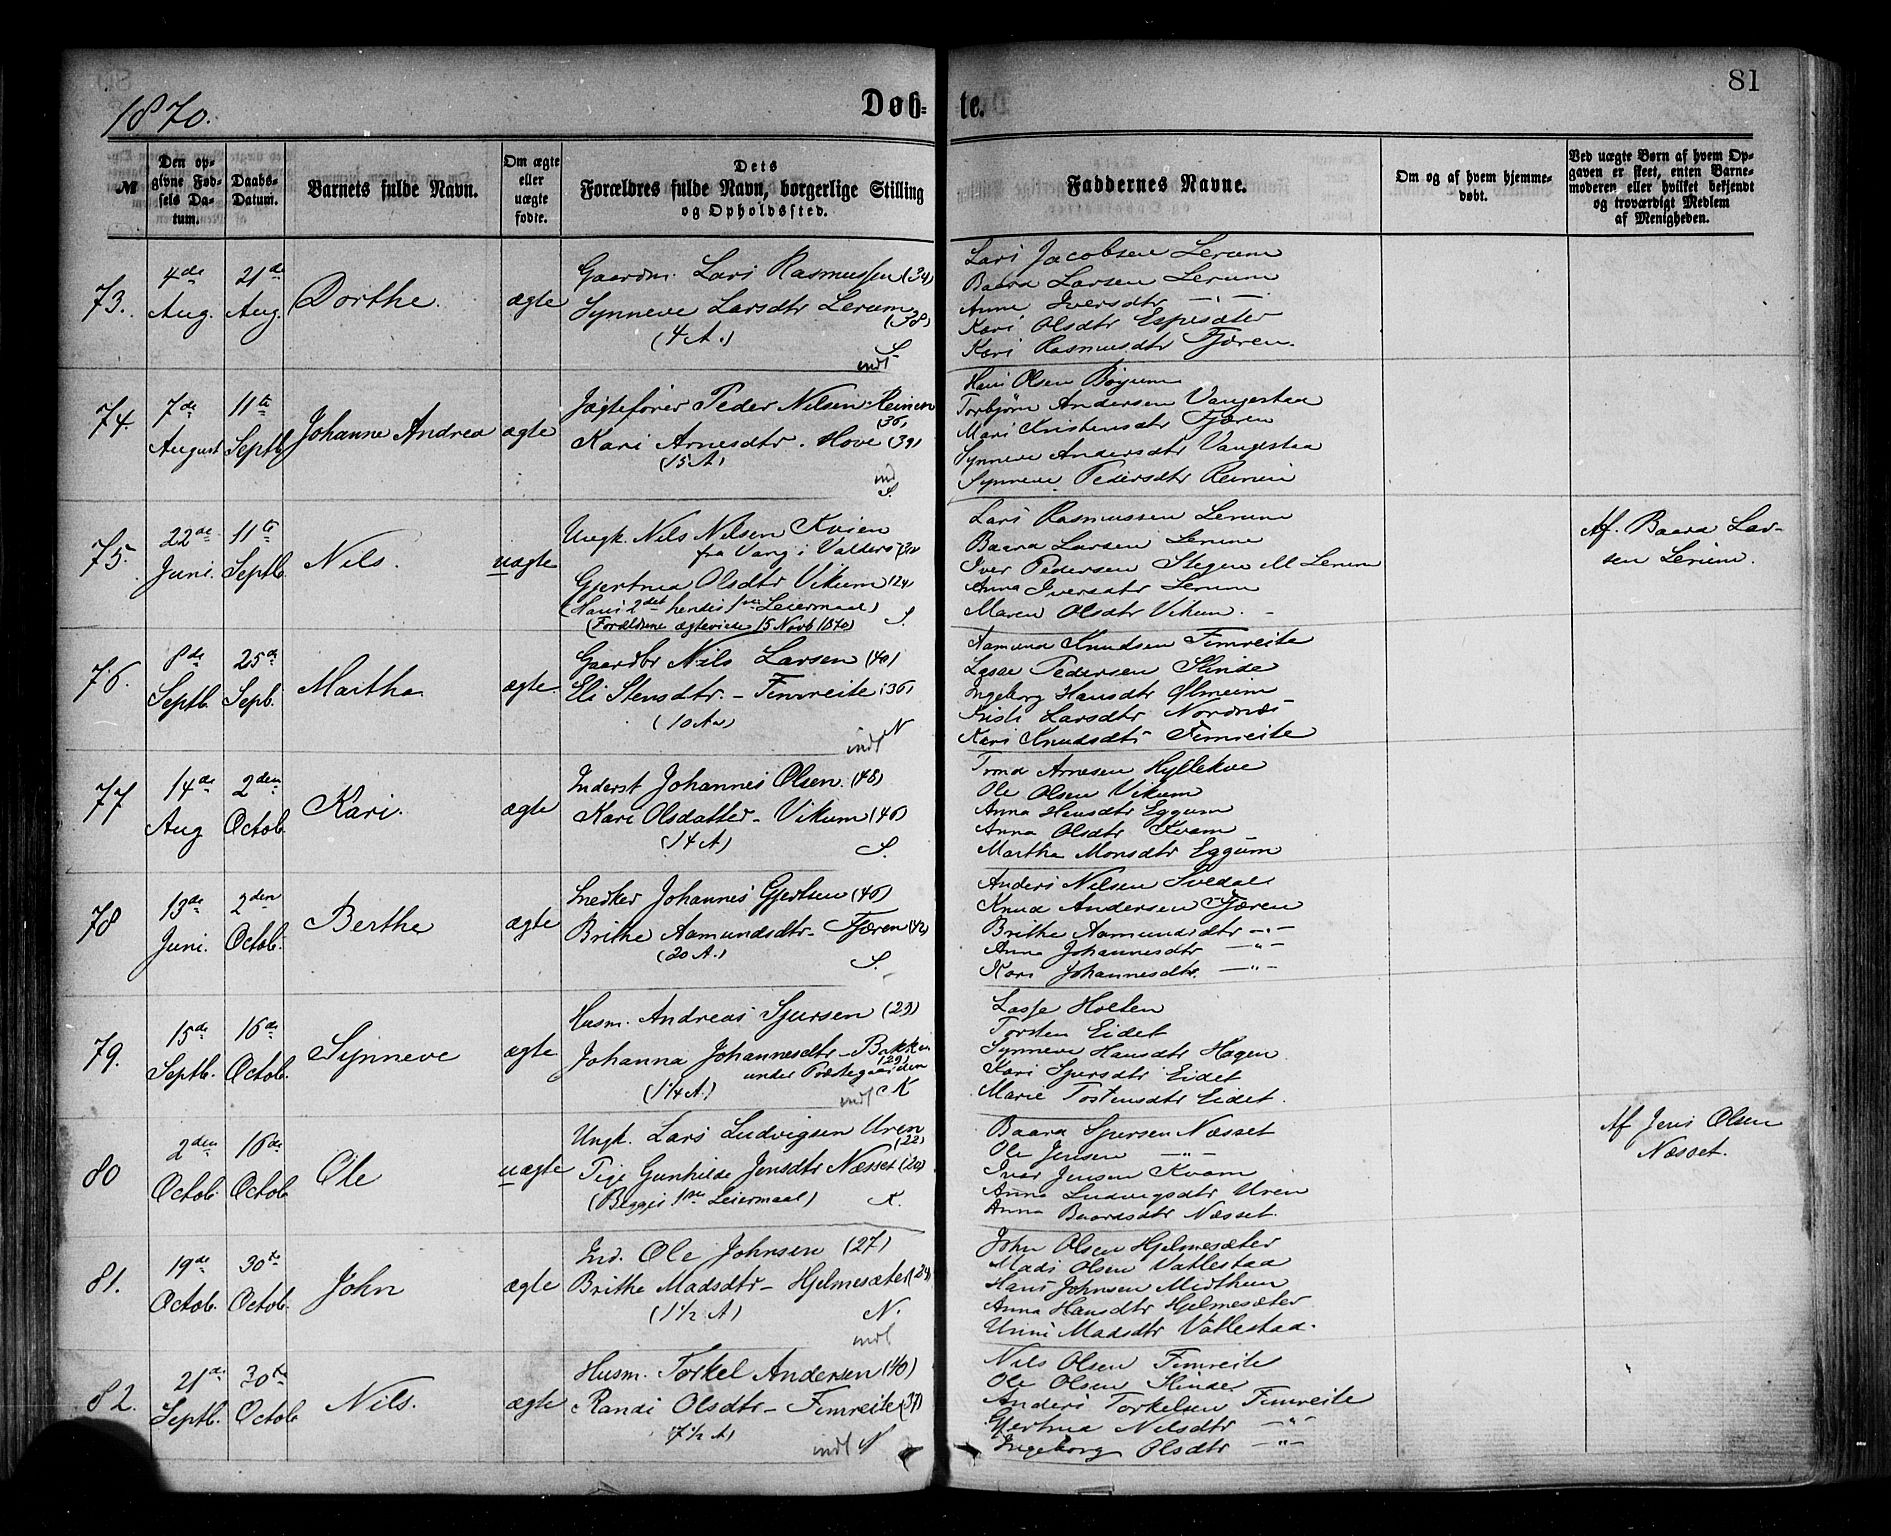 81
1870.
Døb-
te.
№
Den op-
givne Fød-
sels Da-
tum.
Daabs-
Datum.
Barnets fulde Navn.
Om ægte
eller
uægte
fødte.
Dets
Forældres fulde Navn, borgerlige Stilling
og Opholdssted.
Faddernes Navne.
Om og af hvem hjemme-
døbt.
Ved uægte Børn af hvem Op-
gaven er skeet, enten Barne-
moderen eller hvilket bekjendt
og troværdigt Medlem
af Menigheden.
73.
4de
Aug.
21de
Aug.
Dorthe.
ægte
Gaardm. Lars Rasmussen (34)
Synneve Larsdtr Lerum
(38)
(4 A.)
S
indl
Lars Jacobsen Lerum
Baard Larsen Lerum
Anna Iversdtr —"—
Kari Olsdtr Espesæter
Kari Rasmusdtr Fjæren.
74.
7de
August
11te
Septb.
Johanne Andrea
ægte
Jægtefører Peder Nilsen Reinen
(36)
Kari Arnesdtr. Hove (39)
(15 A)
ind
S.
Hans Olsen Bøyum
Torbjørn Andersen Vangestaa
Mari Kristensdtr Fjæren
Synneve Andersdtr Vangestaa
Synneve Pedersdtr Reinen
75.
22de
Juni.
11te
Septb.
Nils.
uægte
Ungk. Nils Nilsen Kvien
fra Vang i Valders
Gjertrud Olsdtr Vikum (24)
(Hans 2det hendes 1ste Leiermaal)
(Forældrene ægteviede 15 Novb 1870)
S.
Lars Rasmussen Lerum
Baard Larsen Lerum
Iver Pedersen Stegen M Lerum
Anna Iversdtr Lerum
Maren Olsdtr Vikum.
Af. Baard Lar-
sen Lerum.
76.
8de
Septb.
25de
Sepb.
Martha
ægte
Gaardbr Nils Larsen (40)
Eli Stensdtr - Fimreite (36)
(10 A)
N
indl
Aamund Knudsen Fimreite
Lasse Pedersen Slinde
Ingeborg Hansdtr Ølmeim
Kristi Larsdtr Nordnæs
Kari Knudsdtr Fimreite
77
14de
Aug
2den
Octob.
Kari.
ægte
Inderst Johannes Olsen. (48)
Kari Olsdatter - Vikum (46)
(14 A)
S.
Trond Arnesen Hyllekve
Ole Olsen Vikum
Anna Hansdtr Eggum
Anna Olsdtr Kvam
Martha Monsdtr Eggum
78
13de
Juni.
2den
Octob.
Berthe
ægte
Snedker Johannes Gjertsen (46)
Brithe Aamundsdtr - Fjæren (42)
(20 A.)
S.
Anders Nilsen Svedal
Knud Andersen Fjæren
Brithe Aamundsdtr —"—
Anna Johannesdtr —"—
Kari Johannesdtr. —"—
79.
15de
Septb.
16de
Octob.
Synneve
ægte
Husm. Andreas Sjursen (29)
Johanna Johannesdtr - Bakken
(29)
under Præstegaarden
(1/4 A.)
indl K
Lasse Holten
Torsten Eidet
Synneve Hansdtr Hagen
Kari Sjursdtr Eidet
Marie Tostensdtr Eidet.
80
2den
Octob.
16de
Octob.
Ole
uægte
Ungk. Lars Ludvigsen Uren
(22)
Pige Gunhilde Jensdtr Næsset (20)
(Begges 1ste Leiermaal)
K.
Baard Sjursen Næsset
Ole Jensen —"—
Iver Jensen Kvam
Anna Ludvigsdtr Uren
Anna Baardsdtr Næsset.
Af Jens Olsen
Næsset.
81.
19de
Octob.
30te
Octob.
John
ægte
Ind. Ole Johnsen (27)
Brithe Madsdtr - Hjelmesæter (24)
(1½ A)
N.
indl
John Olsen Hjelmesæter
Mads Olsen Vatlestaa
Hans Johnsen Midthun
Anna Hansdtr Hjelmesæter
Unni Madsdtr Vatlestaa.
82.
21de
Septb.
30te
Octob
Nils.
ægte
Husm. Torkel Andersen (40)
Randi Olsdtr - Fimreite (37)
(7½ A)
indl N
Nils Olsen Fimreite
Ole Olsen Slinde
Anders Torkelsen Fimreite
Gjertrud Nilsdtr —"—
Ingeborg Olsdtr —"—